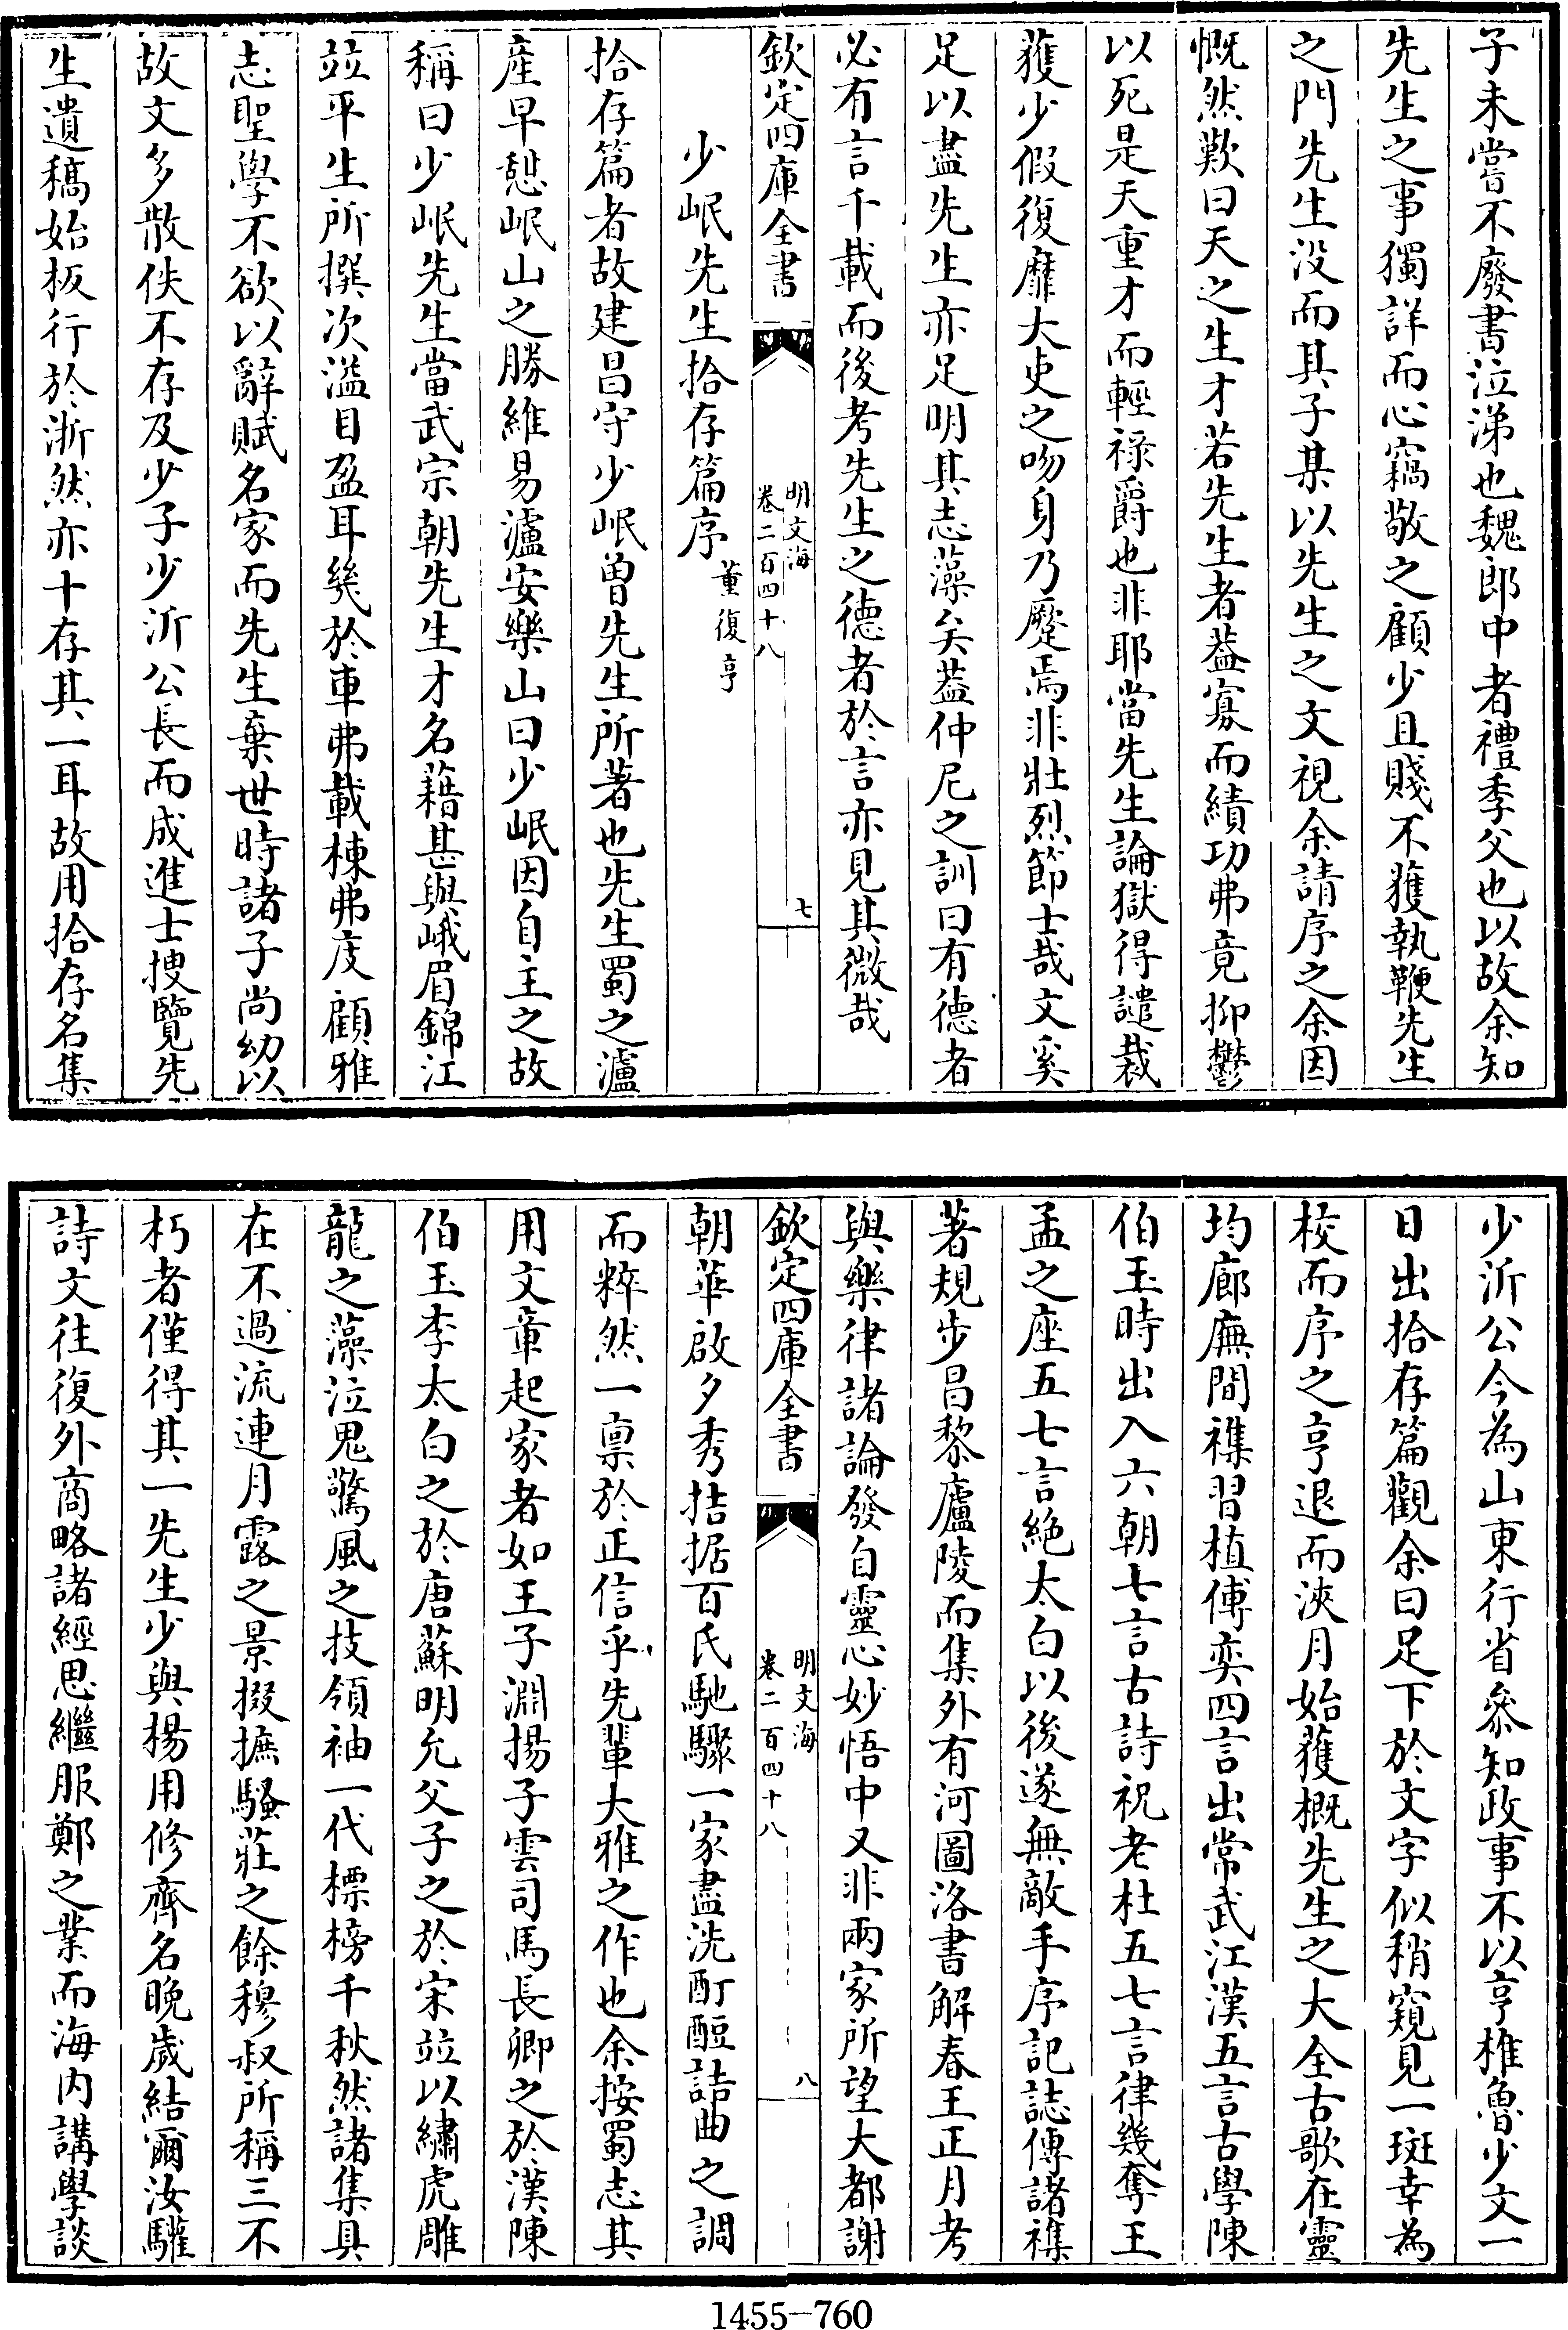 子未嘗不廢書泣涕也魏郎中者禮季父也以故余知
先生之事獨詳而心竊敬之顧少且賤不獲執鞭先生
之門先生没而其子某以先生之文視余請序之余因
慨然歎曰天之生才若先生者葢寡而績功弗竟抑鬱
以死是天重才而輕禄爵也非耶當先生論獄得譴裁
獲少假復靡大吏之吻身乃壓焉非壯烈節士哉文奚
足以盡先生亦足明其志藻矣葢仲尼之訓曰有德者
必有言千載而後考先生之德者於言亦見其微哉
欽定四庫全書
明文海
卷二百四十八
七
少岷先生拾存篇序
董復亨
拾存篇者故建昌守少岷曽先生所著也先生蜀之瀘
産早憇岷山之勝維易瀘安樂山曰少岷因自主之故
稱曰少岷先生當武宗朝先生才名藉甚與峨眉錦江
竝平生所撰次溢目盈耳幾於車弗載棟弗庋顧雅
志聖學不欲以辭賦名家而先生棄世時諸子尚幼以
故文多散佚不存及少子少沂公長而成進士搜覽先
生遺稿始板行於浙然亦十存其一耳故用拾存名集
少沂公今為山東行省叅知政事不以亨椎魯少文一
日出拾存篇觀余曰足下於文字似稍窺見一斑幸為
校而序之亨退而浹月始獲概先生之大全古歌在靈
均廊廡間襍習植傅奕四言出常武江漢五言古學陳
伯玉時出入六朝七言古詩祝老杜五七言律幾奪王
孟之座五七言絶太白以後遂無敵手序記誌傳諸襍
著規步昌黎廬陵而集外有河圖洛書解春王正月考
與樂律諸論發自靈心妙悟中又非兩家所望大都謝
欽定四庫全書
明文海
卷二百四十八
八
朝華啟夕秀拮据百氏馳驟一家盡洗酊醖詰曲之調
而粹然一禀於正信乎先輩大雅之作也余按蜀志其
用文章起家者如王子淵揚子雲司馬長卿之於漢陳
伯玉李太白之於唐蘇明允父子之於宋竝以繡虎雕
龍之藻泣鬼驚風之技領袖一代標榜千秋然諸集具
在不過流連月露之景掇摭騷莊之餘穆叔所稱三不
朽者僅得其一先生少與楊用修齊名晚歲結爾汝驩
詩文往復外商略諸經思繼服鄭之業而海内講學談
1455-760